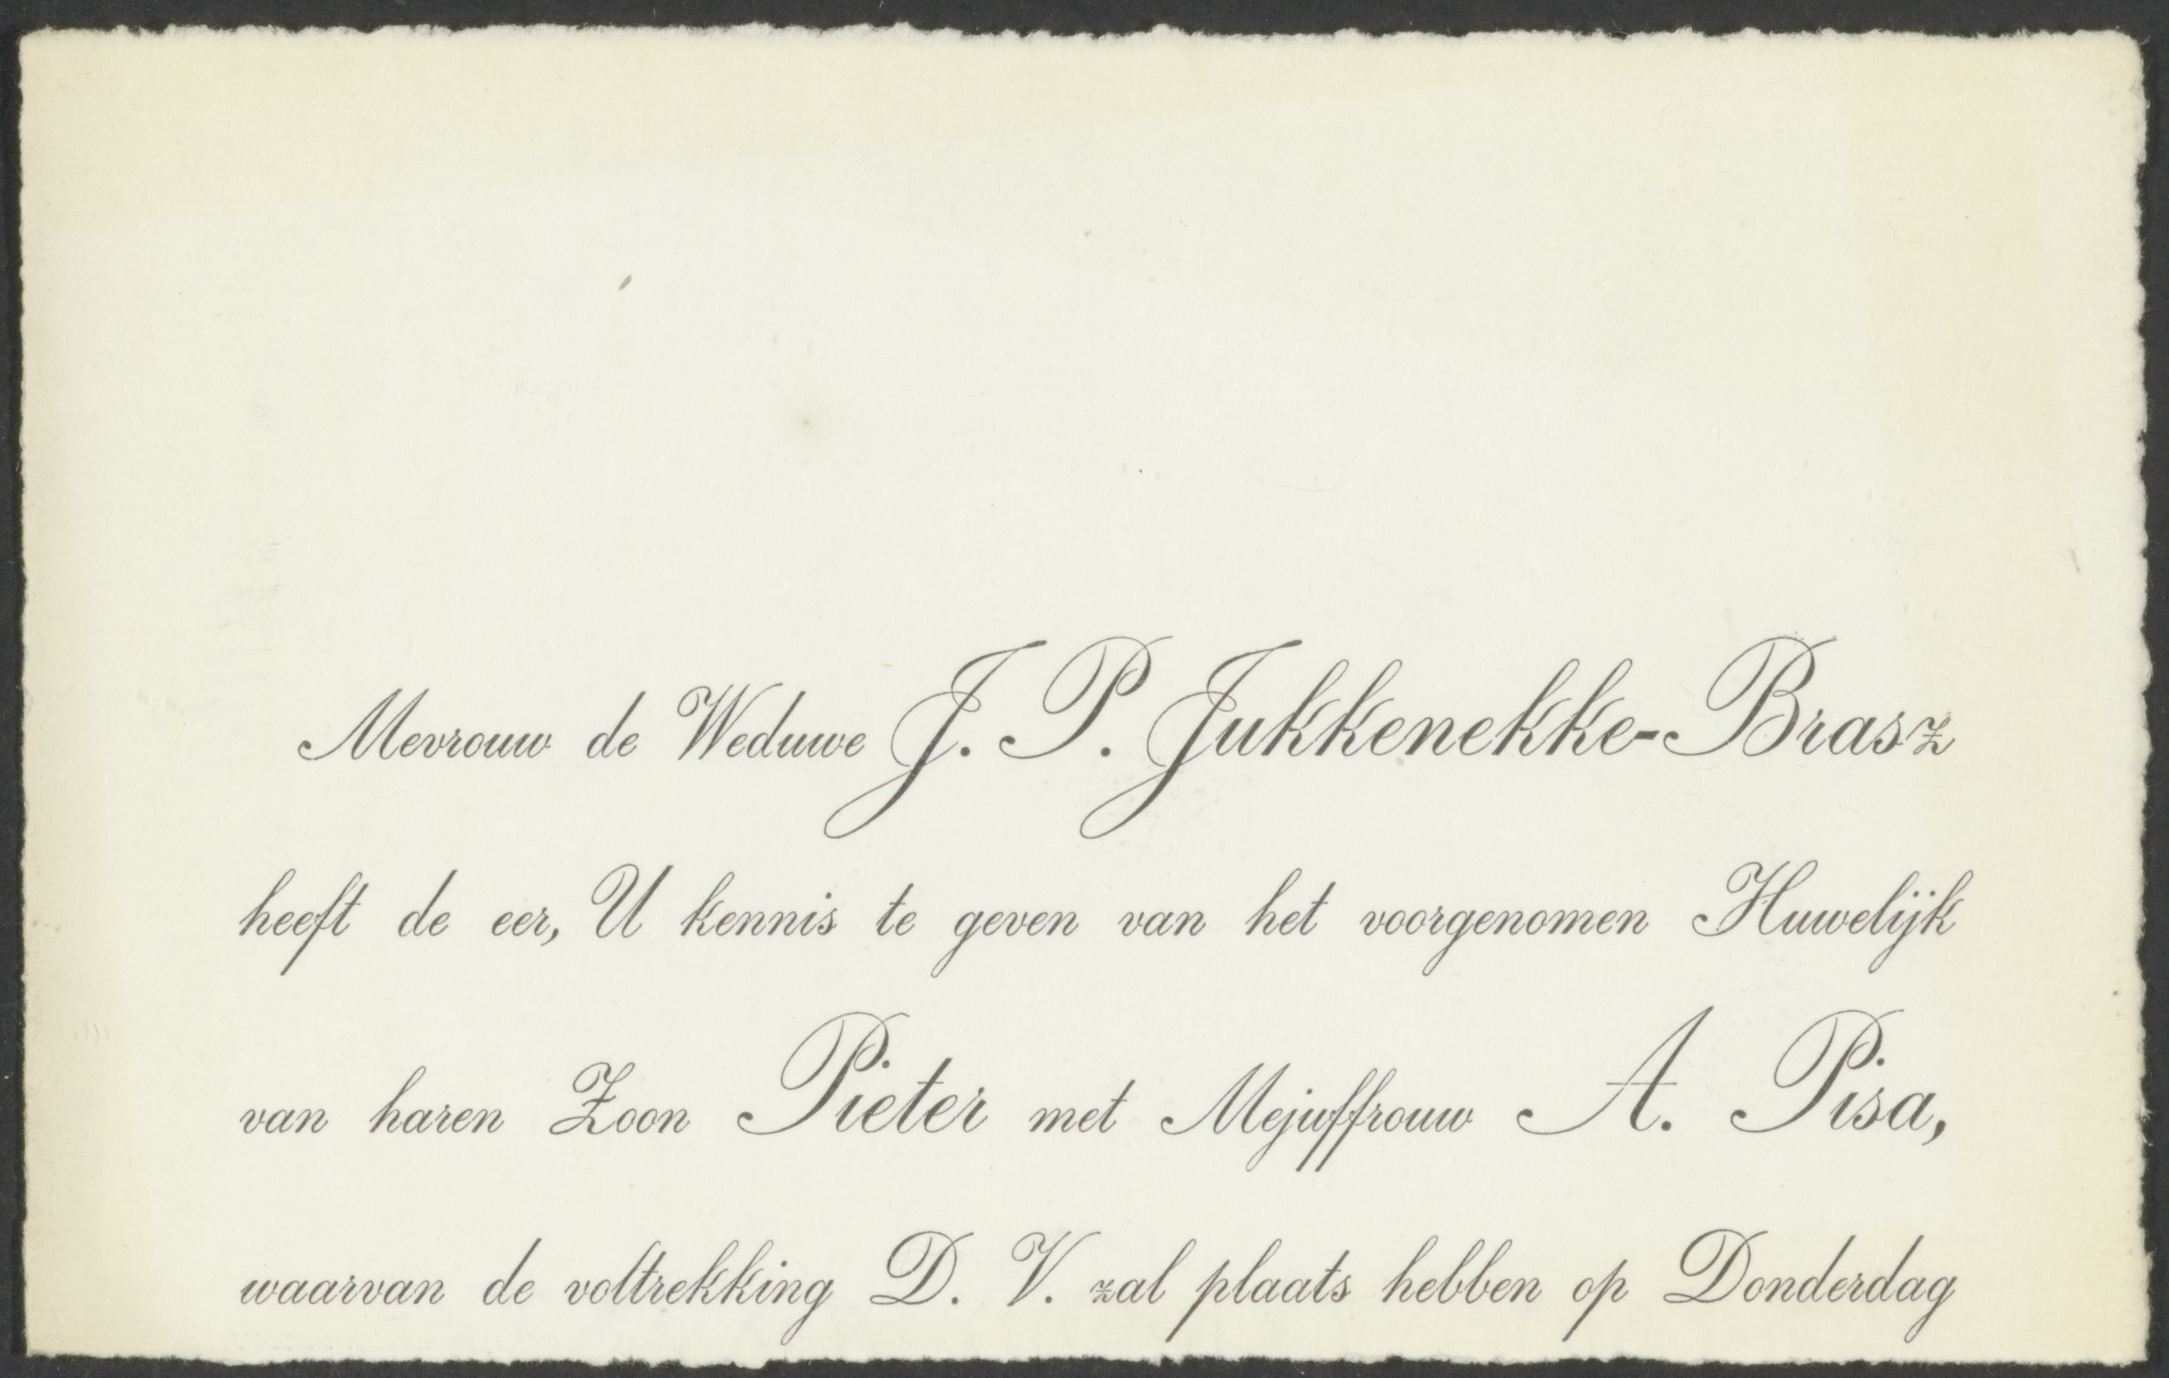 Mevrouw de Weduwe J. P. Jukkenekke-Brasz
heeft de eer, U kennis te geven van het voorgenomen Huwelijk
van haren Zoon Pieter met Mejuffrouw A. Pisa,
waarvan de voltrekking D. V. zal plaats hebben op Donderdag